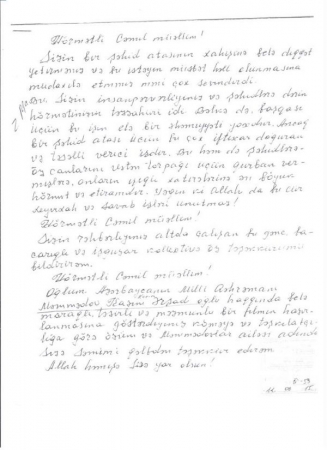 Hörmətli Cəmil müəllim!
Sizin bir şəhid atasının xahişinə belə diqqət
yetirməniz və bu istəyin müsbət həll olunmasına
müdaxilə etməniz məni çox sevindirdi.
Bu, Sizin insanpərvərliyiniz və şəhidlərə olan
hörmətinizin təzahürü idi. Bəlkə də, başqası
üçün bu işin elə bir əhəmiyyəti yoxdur. Ancaq
bir şəhid atası üçün bu çox iftixar doğuran
və təsəlli verici işdir. Bu həm də şəhidlərə
Öz canlarını Vətən torpağı üçün qurban ver-
mişlərə, onların əziz xatirələrinə ən böyük
hörmət və ehtiramdır. Yəqin ki Allah da bu cür
və savab işini unutmaz!
Hörmətli Cəmil müəllim!
Sizin rəhbərliyiniz altda çalışan bu gənc, ba-
carıqlı və işgüzar kollektivə öz təşəkkürümü
bildirirəm.
Hörmətli Cəmil müəllim!
Oğlum Azərbaycanın Milli Qəhrəmanı
Məmmədov oğlu haqqında belə
maraqlı, təsirli və məzmunlu bir filmin hazır-
lanmasına göstərdiyiniz köməyə və
görə özüm və Məmmədovlar ailəsi adından
Sizə səmimi qəlbdən təşəkkür edirəm.
Allah həmişə Sizə yar olsun!